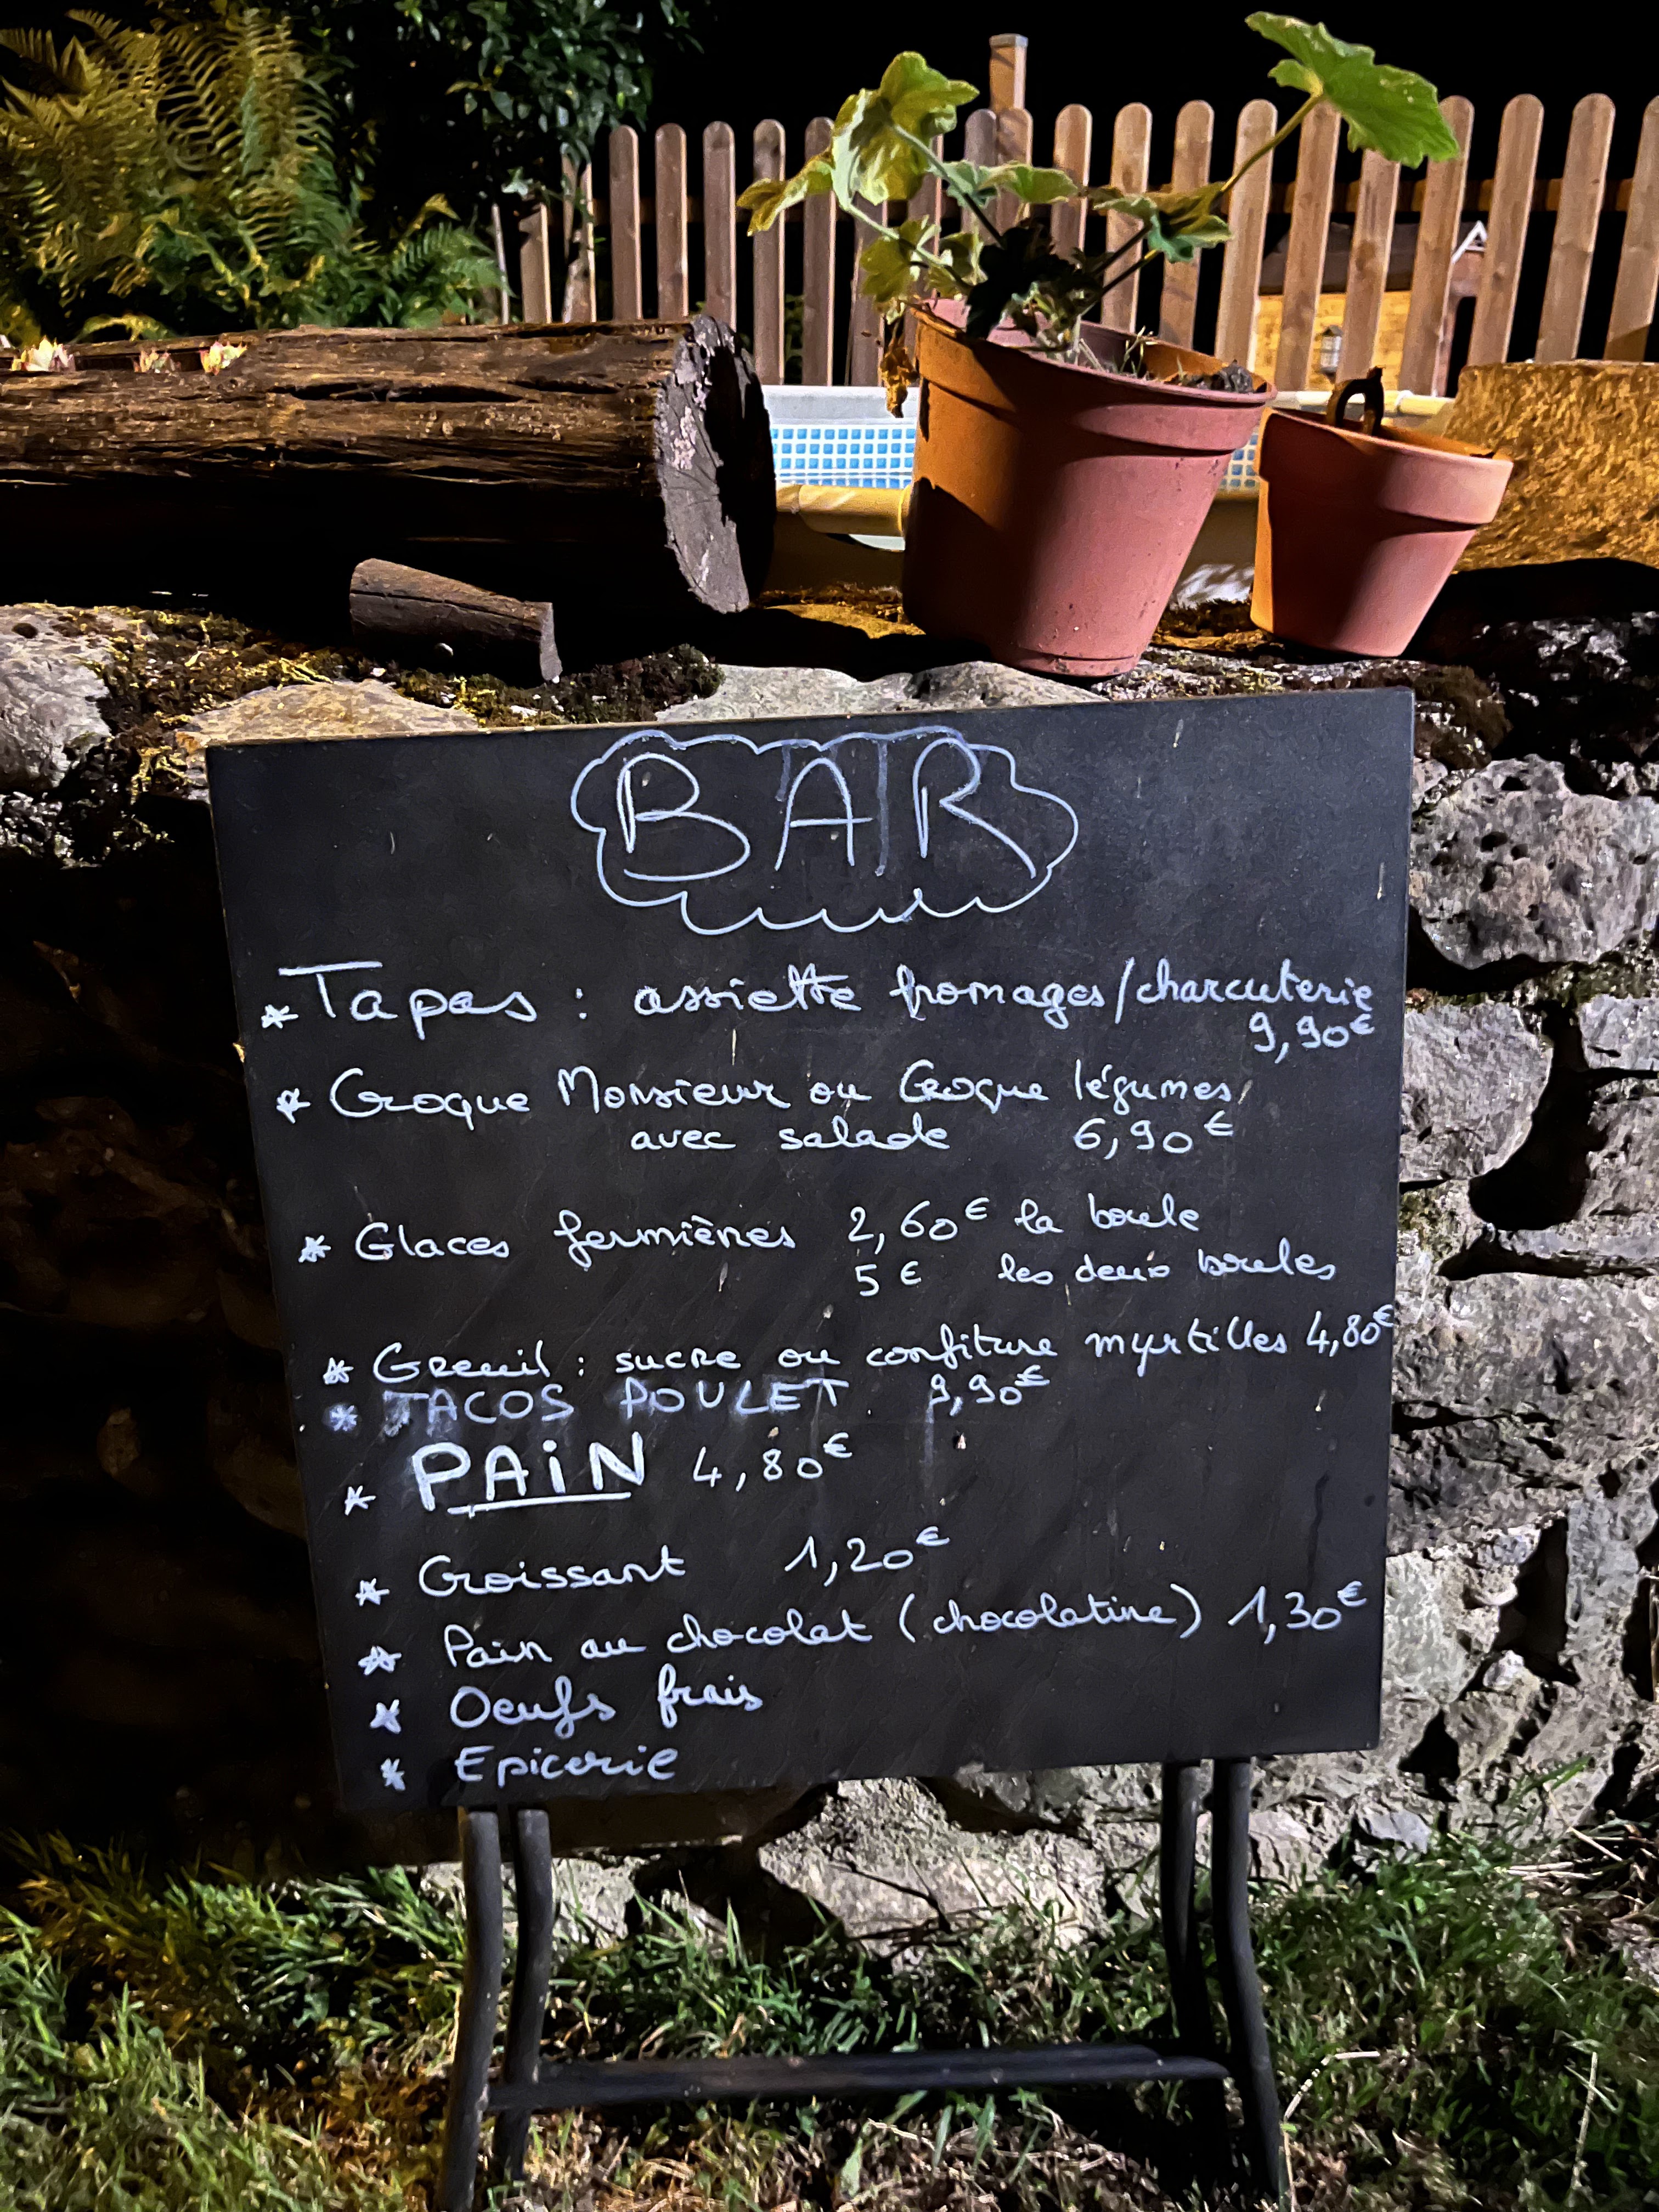 BAR
* Tapas : assiette fromages/charcuterie
9,90€
* Croque Monsieur ou Croque légumes
avec salade 6,90€
* Glaces fermières 2,60€ la boule
5€ les deux boules
* Greuil : sucre ou confiture myrtilles 4,80€
* TACOS POULET 9,90€
* PAiN 4,80€
* Croissant 1,20€
* Pain au chocolat (chocolatine) 1,30€
* Oeufs frais
* Epicerie